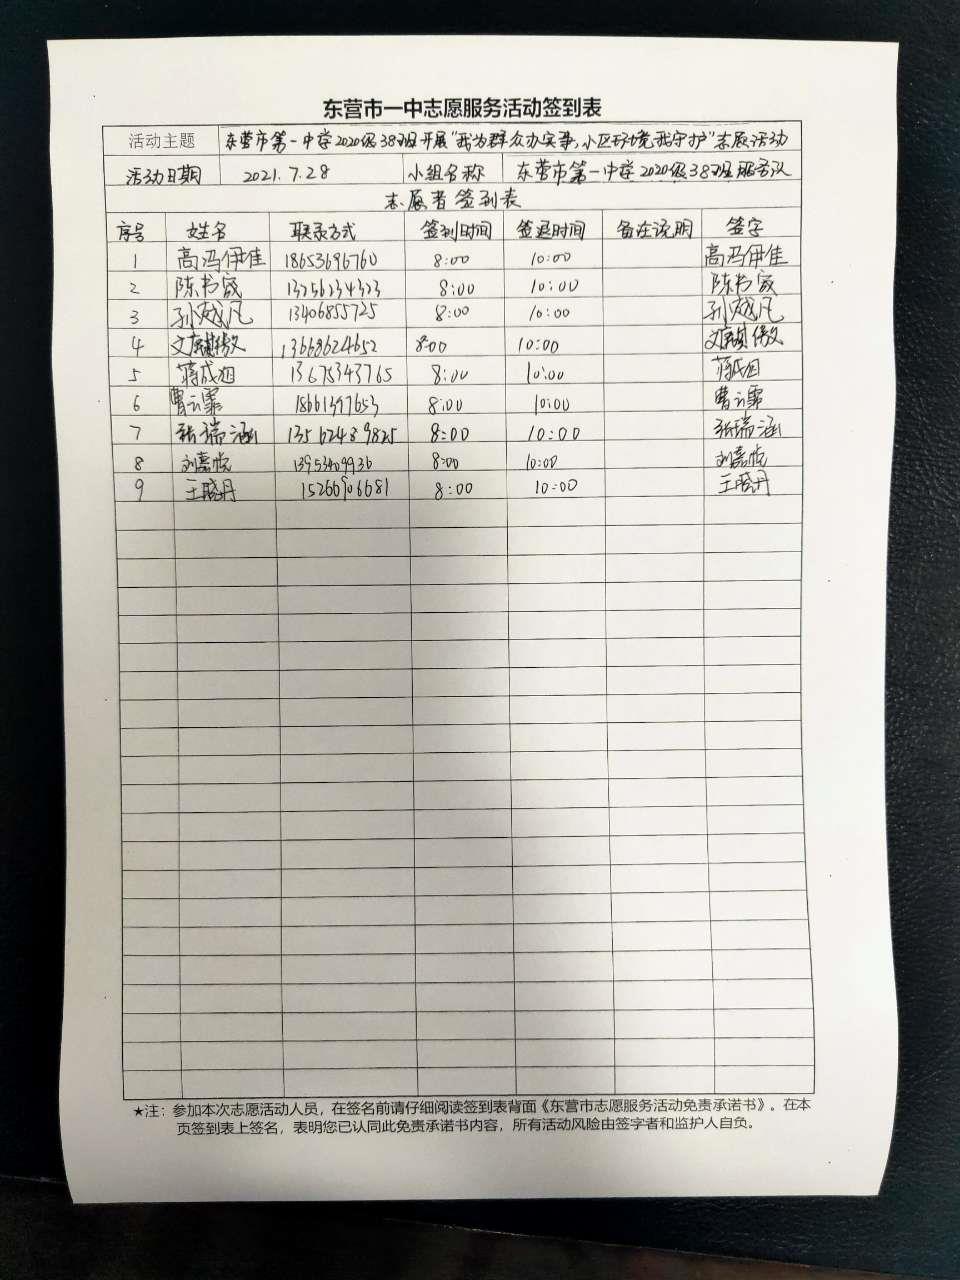 东营市一中志愿服务活动签到表
活动主题 东营市第一中学2020级38班开展“我为群众办实事,小区环境我守护”志愿活动
活动日期 2021.7.28 小组名称 东营市第一中学2020级38班服务队
志愿者签到表
序号 姓名 联系方式 签到时间 签退时间 备注说明 签字
1 高冯伊佳 18653696760 8:00 10:00 高冯伊佳
2 陈书宬 13256234323 8:00 10:00 陈书宬
3 孙凡 13406855725 8:00 10:00 孙凡
4 13668624652 8:00 10:00
5 蒋成旭 13675343765 8:00 10:00 蒋成旭
6 曹云霏 18661397653 8:00 10:00 曹云霏
7 张瑞涵 13562489825 8:00 10:00 张瑞涵
8 刘嘉悦 13953409936 8:00 10:00 刘嘉悦
9 王晓丹 15266906681 8:00 10:00 王晓丹
★注：参加本次志愿活动人员，在签名前请仔细阅读签到表背面《东营市志愿服务活动免责承诺书》。在本
页签到表上签名，表明您已认同此免责承诺书内容，所有活动风险由签字者和监护人自负。